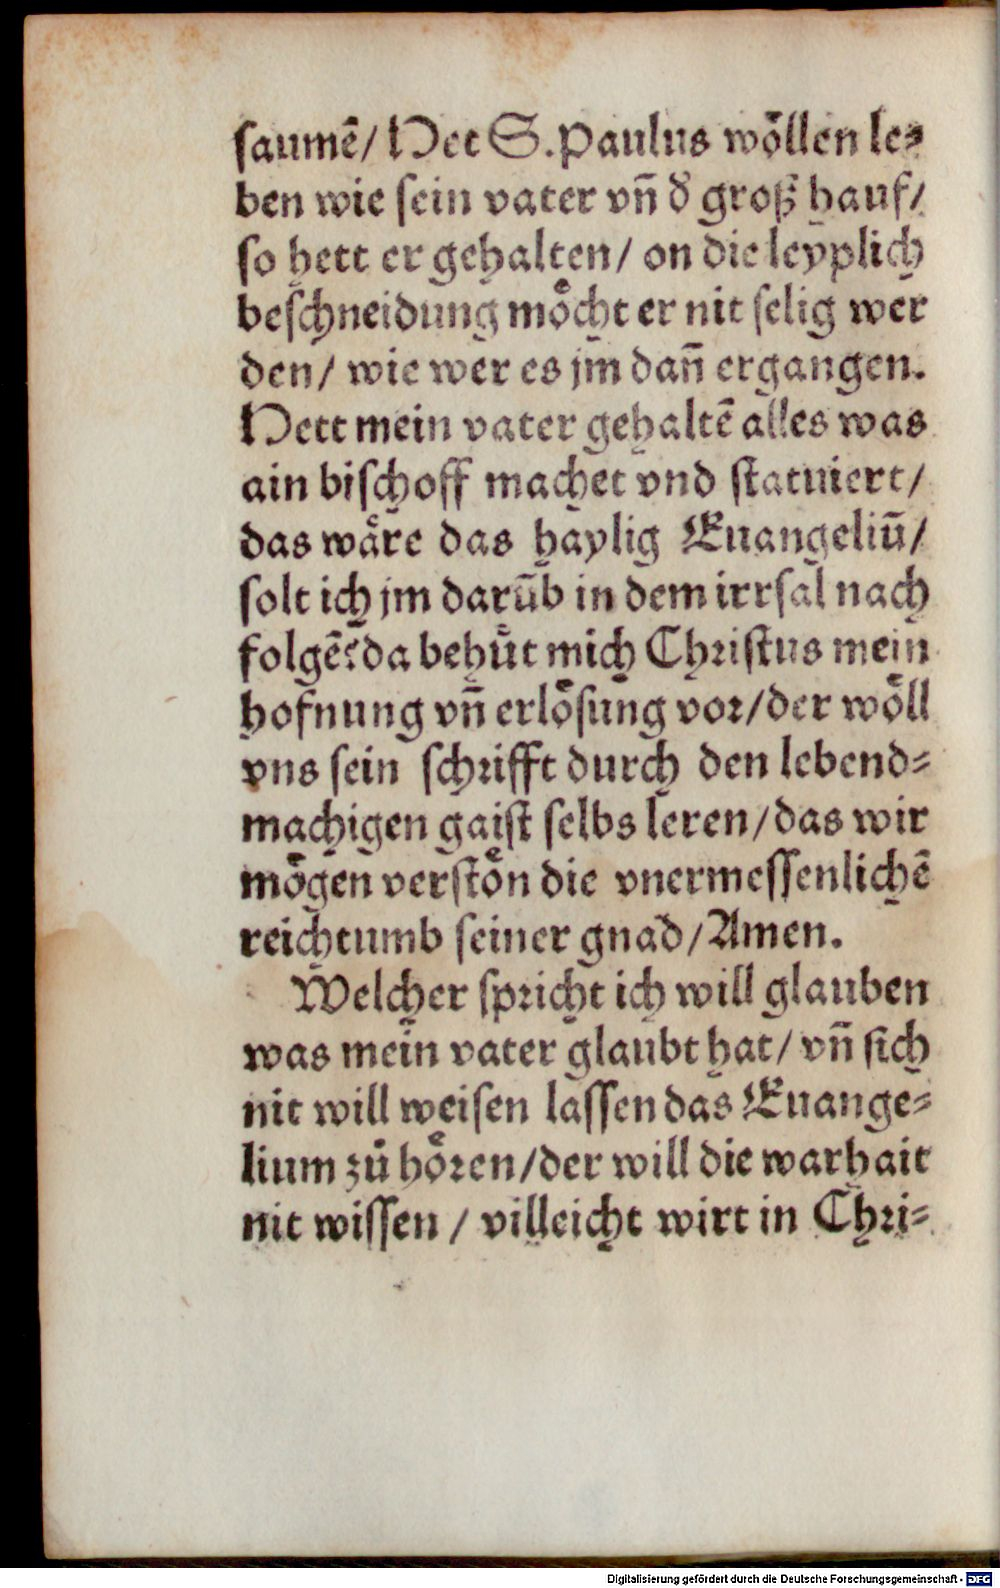 saumē/ Het S. Paulus wöllen le⸗
ben wie sein vater vñ d̄ groß hauf/
so hett er gehalten/ on die leyplich
beschneidung möcht er nit selig wer
den/ wie wer es jm dañ ergangen.
Hett mein vater gehaltē alles was
ain bischoff machet vnd statuiert/
das wäre das haylig Euangeliū/
solt ich jm darūb in dem irrsal nach
folgē? da behüt mich Christus mein
hofnung vñ erlösung vor/der wöll
vns sein schrifft durch den lebend⸗
machigen gaist selbs leren/das wir
mögen verstön die vnermessenlichē
reichtumb seiner gnad/Amen.
Welcher spricht ich will glauben
was mein vater glaubt hat/ vñ sich
nit will weisen lassen das Euange⸗
lium zů hören/der will die warhait
nit wissen / villeicht wirt in Chri⸗
Digitalisierung gefördert durch die Deutsche Forschungsgemeinschaft - DFG